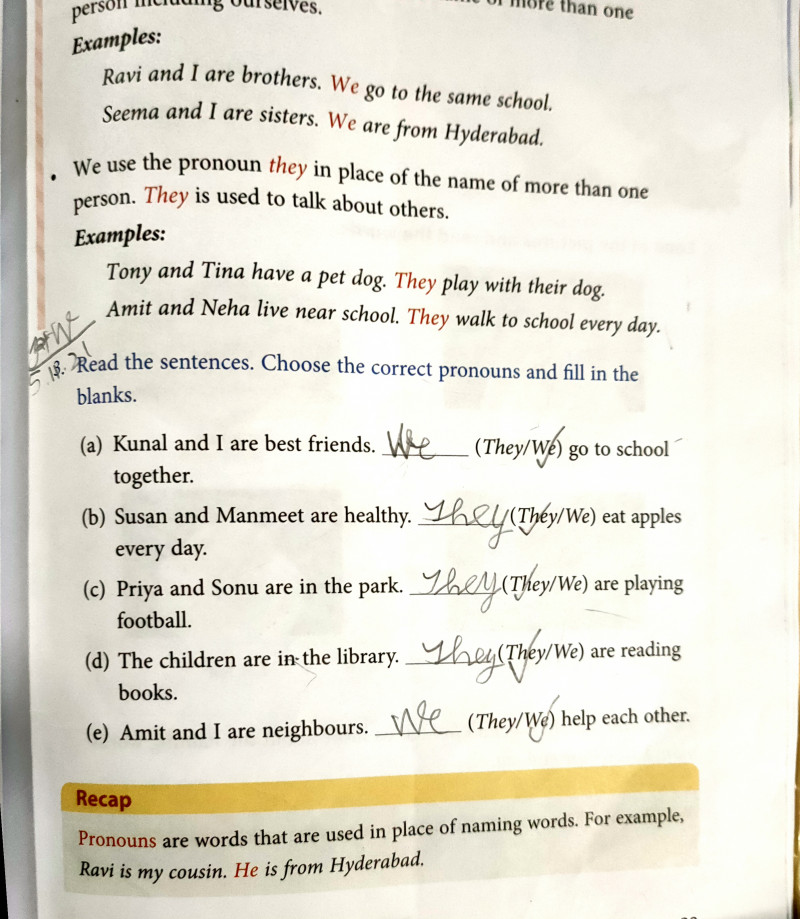 person including ourselves.
of more than one
Examples:
Ravi and I are brothers. We go to the same school.
Seema and I are sisters. We are from Hyderabad.
• We use the pronoun they in place of the name of more than one
person. They is used to talk about others.
Examples:
Tony and Tina have a pet dog. They play with their dog.
Amit and Neha live near school. They walk to school every day.
Read the sentences. Choose the correct pronouns and fill in the
blanks.
(a) Kunal and I are best friends. We (They/We) go to school
together.
(b) Susan and Manmeet are healthy. They (They/We) eat apples
every day.
(c) Priya and Sonu are in the park. They (They/We) are playing
football.
(d) The children are in the library. They (They/We) are reading
books.
(e) Amit and I are neighbours. We (They/We) help each other.
Recap
Pronouns are words that are used in place of naming words. For example,
Ravi is my cousin. He is from Hyderabad.